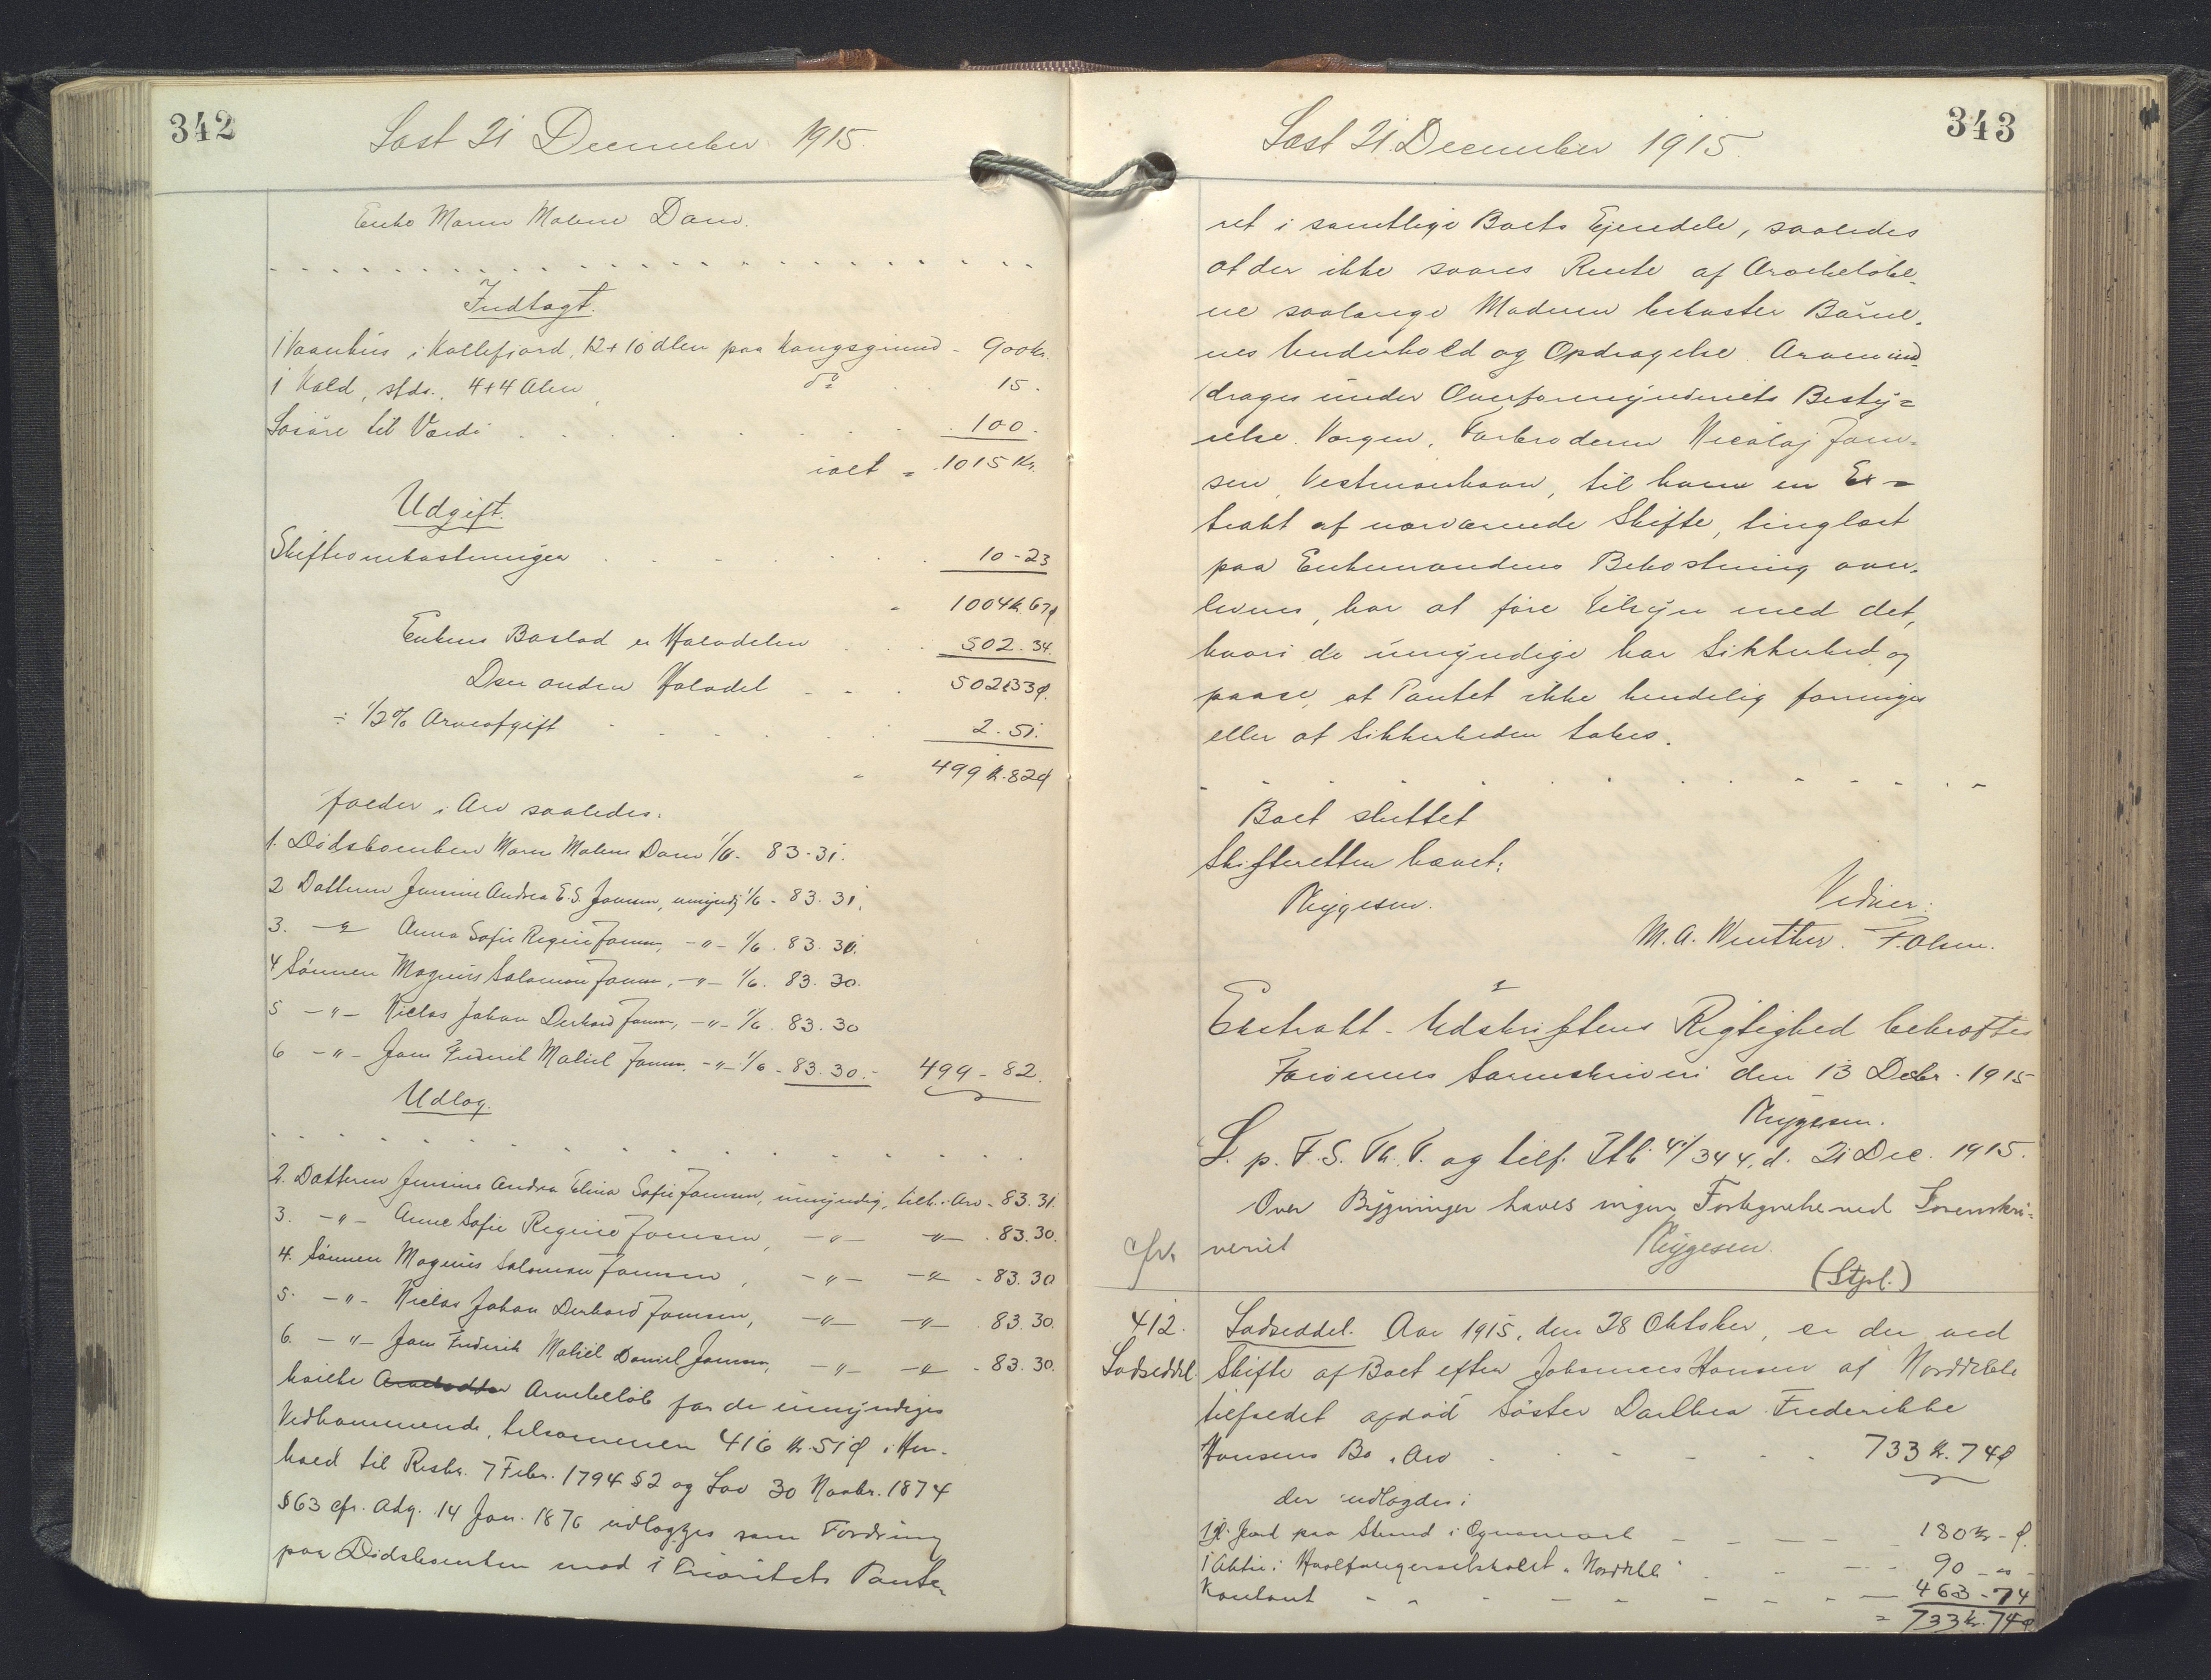 342
Læst 21 December 1915.
Enke Maren Malene Dam.
Indtægt.
1 Vaanhus i Kollefjord, 12 + 10 Alen paa Kongsgrund - 900 Kr.
1 Kald, stds., 4+4 Alen do 15.
Løsøre til Værdi 100.
ialt = 1015 Kr.
Udgift.
Skifteomkostninger 10 - 23
1004 Kr 67 ø
Enkens Boslod er Halvdelen 502. 34.
Den anden Halvdel 502 33 ø.
÷ 1/2 % Arveafgift 2. 51.
499 Kr. 82 ø
falder i Arv saaledes:
1. Dødsboenken Maren Malene Dam 1/6. 83-31.
2 Datteren Jensine Andrea E. S. Joensen, umyndig 1/6 - 83. 31.
3. -"- Anna Sofie Regine Joensen, -"- 1/6. 83. 30.
4 Sønnen Magnus Salomon Joensen, -"- 1/6. 83. 30.
5 -"- Niclas Johan Joensen, -"- 1/6. 83. 30
6 -"- Joen Frederik Joensen. -"- 1/6 - 83. 30.- 499 - 82.
Udlæg.
2. Datteren Jensine Andrea Elina Sofie Joensen, umyndig, tilk. i Arv - 83. 31.
3. -"- Anne Sofie Regine Joensen, -"- -"- . 83. 30.
4. Sønnen Magnus Salomon Joensen, -"- -"- - 83. 30
5. -"- Niclas Johan Joensen, -"- -"- . 83. 30.
6. -"- Joen Frederik Daniel Joensen, -"- -"- - 83. 30.
hvilke Arvebeløb for de umyndiges
Vedkommende, tilsammen 416 Kr. 51 ø i Hen-
hold til Reskr. 7 Febr. 1794 § 2 og Lov 30 Novbr. 1874
§ 63 cfr. Adg. 14 Jan. 1876 udlægges som Fordring
paa Dødsboenken mod 1 Prioritets Pante-
343
Læst 21. December 1915.
ret i samtlige Boets Ejendele, saaledes
at der ikke svares Rente af Arvebeløbe-
ne saalænge Moderen bekoster Børne-
nes Underhold og Opdragelse. Arven ind-
drages under Overformynderiets Besty-
relse. Værgen, Farbroderen Nicolaj Joen-
sen, Vestmanhavn, til hvem en Ex-
trakt af nærværende Skifte, tinglæst
paa Enkemandens Bekostning over-
leveres, har at føre Tilsyn med det,
hvori de umyndige har Sikkerhed og
paase, at Pantet ikke kendelig forringes
eller at Sikkerheden tabes.
Boet sluttet
Skifteretten hævet.
Nygesen.
Vidner:
M. A. Winther. F. Olsen.
Ekstrakt-Udskriftens Rigtighed bekræftes
Færøernes Sorenskriveri den 13 Decbr. 1915
Nygesen.
L. p. F. S. Th. V. og tilf. Ttb. 4/344, d. 21 Dec. 1915.
Over Bygninger haves ingen Fortegnelse ved Sorenskri-
cfr. veriet
Nygesen.
(Stpl.)
412. Lodseddel. Aar 1915, den 28 Oktober, er der ved
Lodseddel. Skifte af Boet efter Johannes Hansen af Norddeble
tilfaldet afdød Søster Dorthea Frederikke
Hansens Bo i Arv 733 Kr. 74 ø
der udlagdes i
Jord paa i 180 Kr - ø.
1 Aktie i Hvalfangerselskabet "Norddeble" 90 - " -
Kontant 463 - 74
= 733 Kr. 74 ø